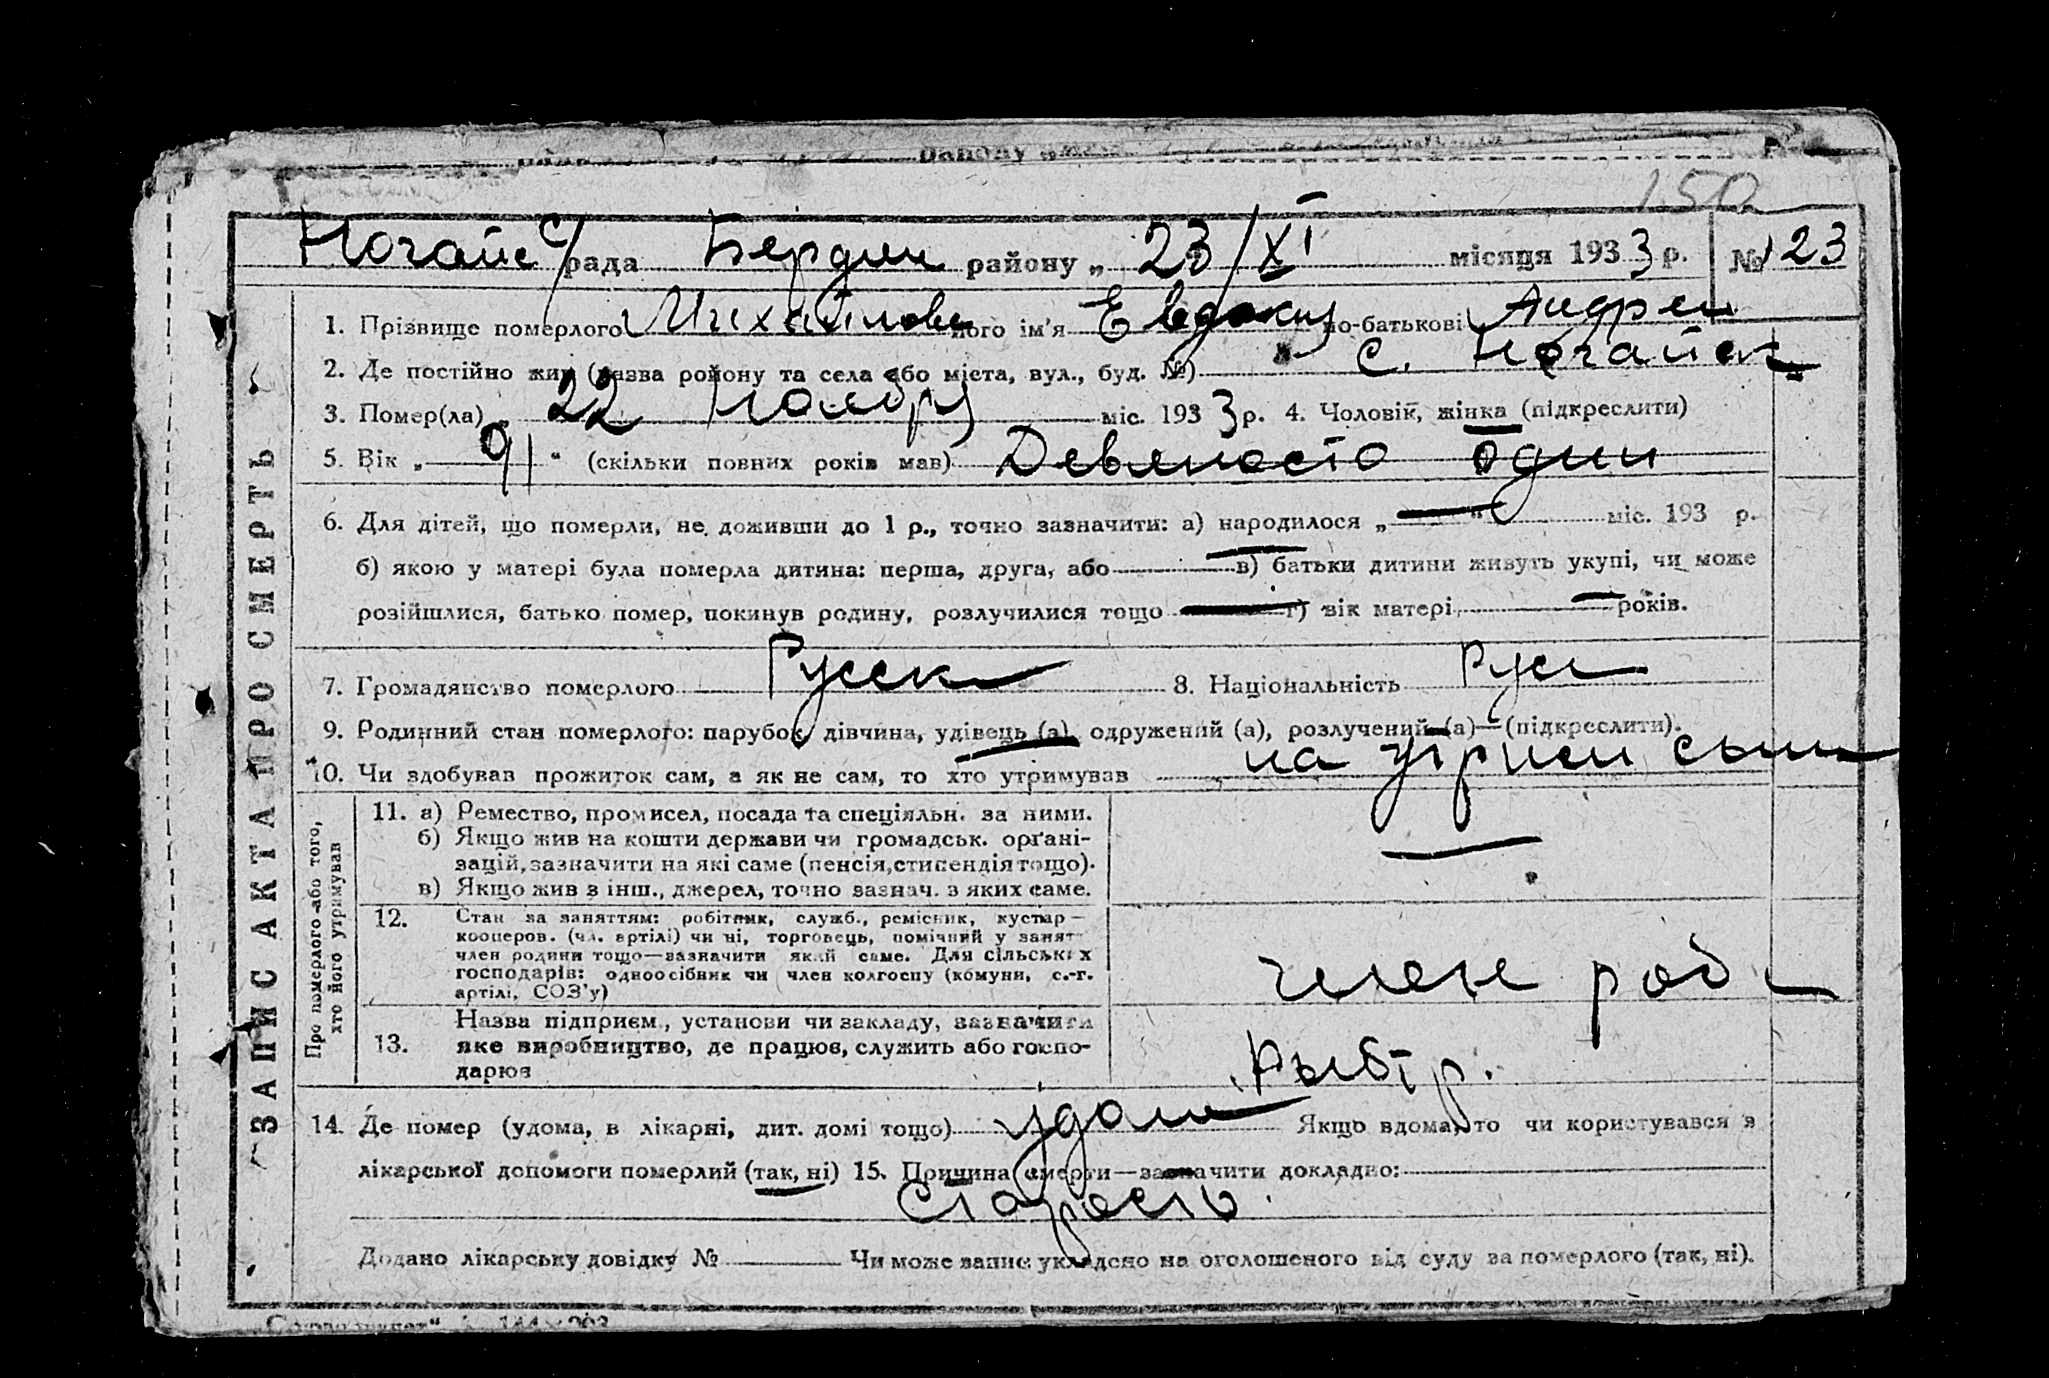 150
Ногайс с/рада Бердян району „ 23/XI місяця 1933 р. № 123
1. Прізвище померлого Михайлове його ім'я Евдоки по-батькові Андреи
2. Де постійно жив (назва району та села або міста, вул., буд. №) с. Ногайск
3. Помер(ла) 22 Ноября міс. 1933 р. 4. Чоловік, жінка (підкреслити)
5. Вік „ 91 “ (скільки повних років мав) Девяносто один
6. Для дітей, що померли, не доживши до 1 р., точно зазначити: а) народилося „ — “ міс. 193 р.
б) якою у матері була померла дитина: перша, друга, або — в) батьки дитини живуть укупі, чи може
розійшлися, батько помер, покинув родину, розлучилися тощо — г) вік матері — років.
7. Громадянство померлого Русск 8. Національність Русс
9. Родинний стан померлого: парубок, дівчина, удівець (а), одружений (а), розлучений (а)—(підкреслити).
10. Чи здобував прожиток сам, а як не сам, то хто утримував на утримен сына
11. а) Ремество, промисел, посада та спеціяльн. за ними.
б) Якщо жив на кошти держави чи громадськ. орґані-
зацій, зазначити на які саме (пенсія, стипендія тощо).
—
в) Якщо жив з інш., джерел, точно зазнач. з яких саме.
12. Стан за заняттям: робітник, служб., ремісник, кустар —
кооперов. (чл. артілі) чи ні, торговець, помічний у занят
член родини тощо—зазначити який саме. Для сільських
господарів: одноосібник чи член колгоспу (комуни, с.-г.
артілі, СОЗ'у)
член род
13. Назва підприєм., установи чи закладу, зазначити
яке виробництво, де працює, служить або госпо-
дарює
Рыбтр.
14. Де помер (удома, в лікарні, дит. домі тощо) удома Якщо вдома, то чи користувався з
лікарської допомоги померлий (так, ні) 15. Причина смерти—зазначити докладно:
Старость.
Додано лікарську довідку № — Чи може запис укладено на оголошеного від суду за померлого (так, ні).
ЗАПИС АКТА ПРО СМЕРТЬ
Про померлого або того,
хто його утримував